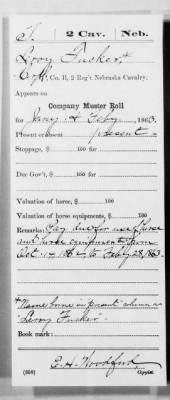 T. | 2 Cav. | Neb.
Leroy Tucker +
Co. B, 2 Reg't Nebraska Cavalry.
Appears on
Company Muster Roll
for Jany. & Feby., 1863.
Present or absent present
Stoppage, $ 100 for
Due Gov't, $ 100 for
Valuation of horse, $ 100
Valuation of horse equipments, $ 100
Remarks: Pay due for use of horse
and horse equipments from
Oct. 14 1862 to Feby 28, 1863.
+ Name borne in "present" column as
"Leroy Tucker".
Book mark:
E. H. Woodford
(358) Copyist.